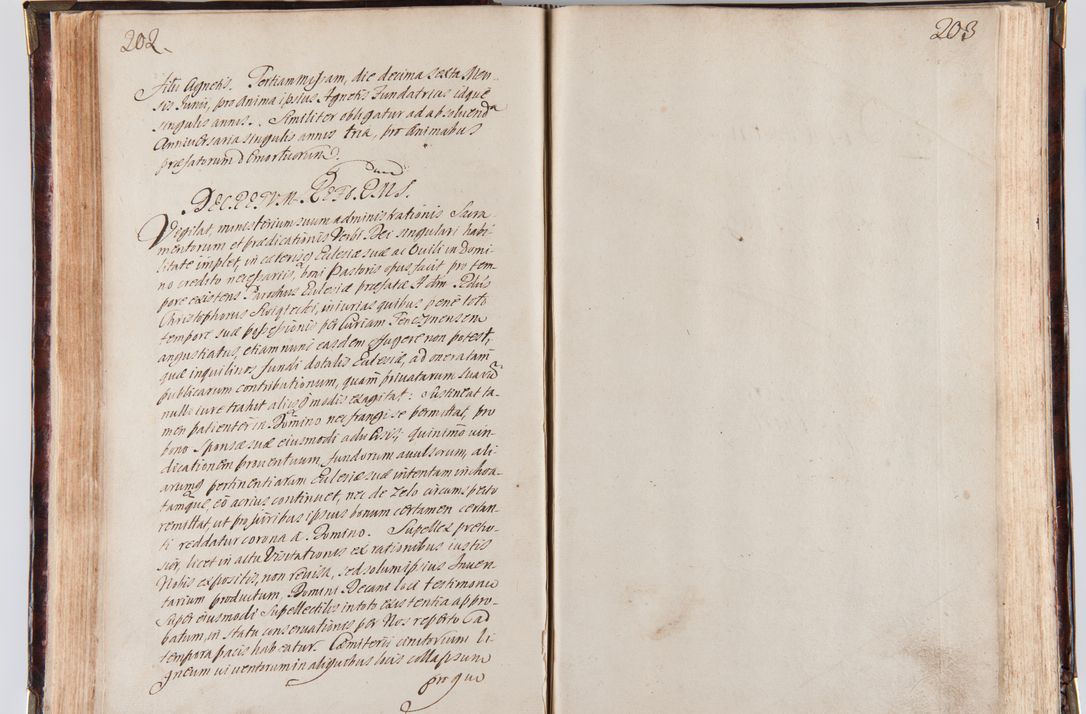 202.
203
situ Agnetis. Tertiam Missam, die decima sexta Men-
sis Junii, pro anima ipsius Agnetis Fundatricis idque
singulis annis. Similiter obligatur ad absolvenda
Anniversaria singulis annis tria, pro animabus
præfatorum Demortuorum.
DECRETUM REFORMS.
Vigilat, ministerium suum administrationis Sacra
mentorum et prædicationis Verbi Dei singulari habi
litate implet, in cæterisq Ecclesiæ suæ ac Ovili in Domi-
no credito necessariis, boni Pastoris opus facit pro tem-
pore existens Parochus Ecclesiæ præfatæ Adm Rdus
Christophorus iniurias quibus pene toto
tempore suæ possessionis per Curiam Tencznensem
angustiatus, etiam nunc easdem fugere non potest,
quæ inquilinos fundi dotalis Ecclesiæ, ad onera tam
publicarum contributionum, quam privatarum suarum
nullo iure trahit aliisq modis exagitat: Sustineat ta-
men patienter in Domino nec frangi se permittat, pro
bono Sponsæ suæ eiusmodi adversis; quinimo vin-
dicationem proventuum, fundorum avulsorum, ali
arumq pertinentiarum Ecclesiæ suæ intentam inchoa-
tamque, eo acrius continuet, nec de Zelo circumspecto
remittat, ut pro juribus ipsius bonum certamen certan
ti reddatur corona a Domino. Supellex pretio
sior, licet in actu Visitationis ex rationibus iustis
Nobis expositis, non revisa, sed solum ipsius Inven-
tarium productum, Domini Decani loci testimonio
super eiusmodi Supellectilis in toto existentia appro-
batum, in statu conservationis per Nos reperto ad
tempora pacis habeatur. Cæmiterii cinctorium li-
gneum vi ventorum in aliquibus locis collapsum
pro quo